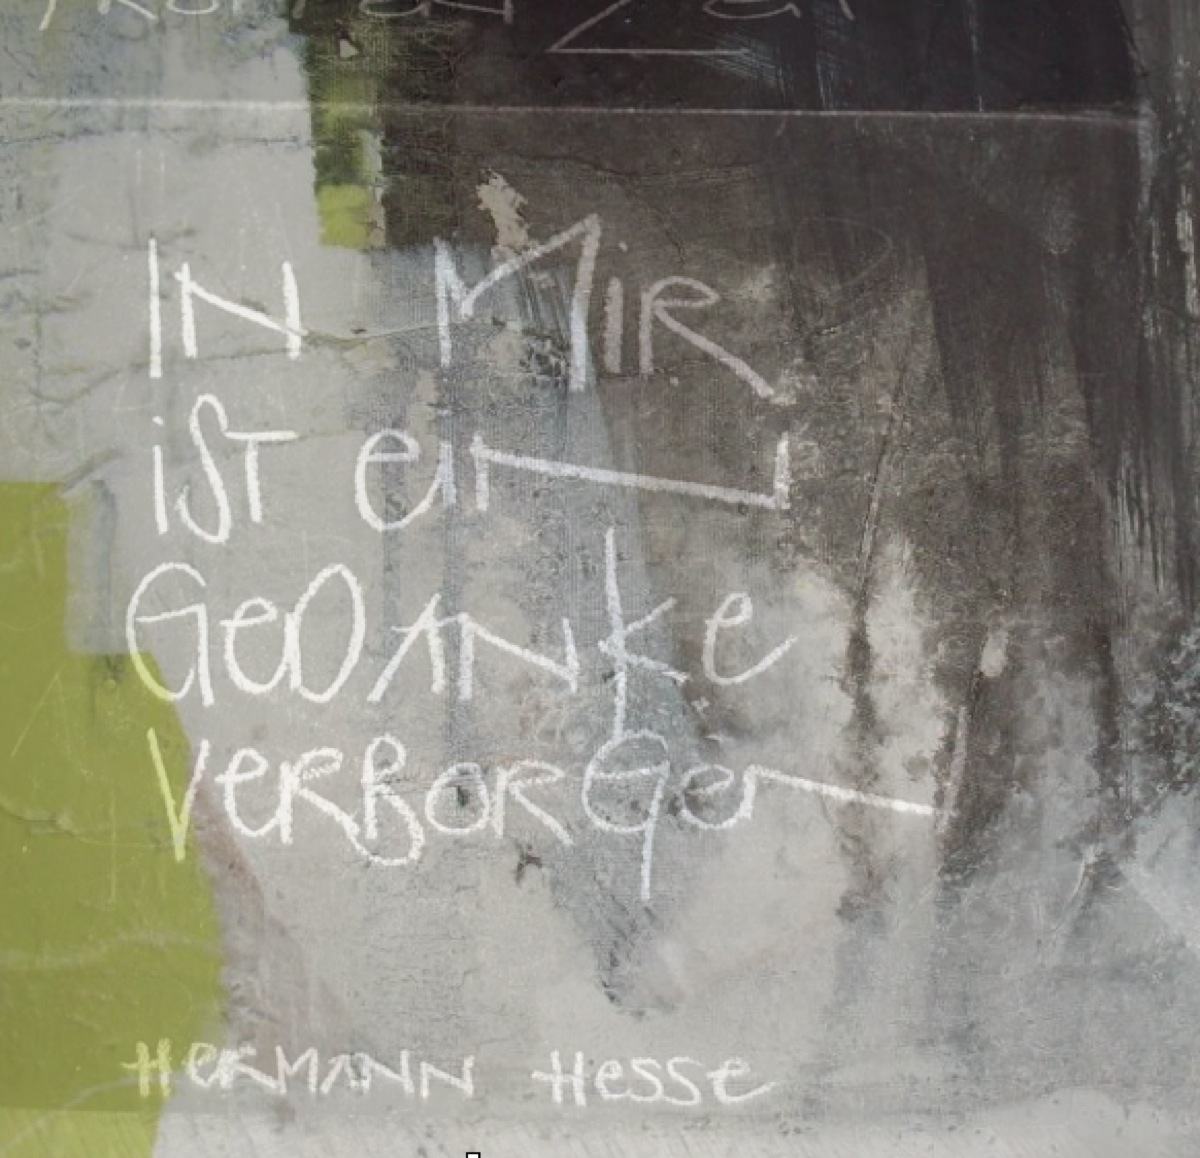 IN MIR
iST ein
GeDANKe
VerBorGen
HerMANN Hesse